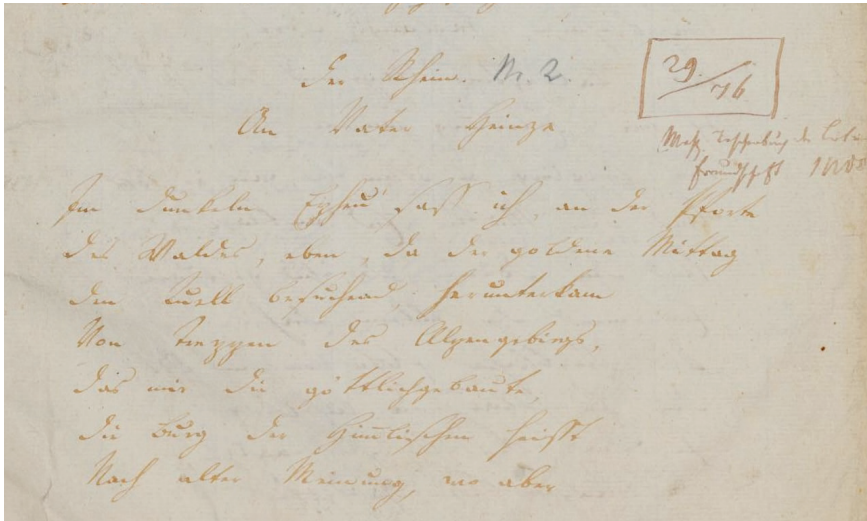 Der Rhein. Nr. 2.
29/76
An Vater Heinze
Taschenbuch der Liebe
Freundschaft
Im dunkeln Epheu saß ich, an der Pforte
Des Waldes, eben, da der goldene Mittag
Den Quell besuchend, herunterkam
Von Treppen des Alpengebirgs,
Das mir die göttlichgebaute,
Die Burg der Himmlischen heißt
Nach alter Meinung, wo aber